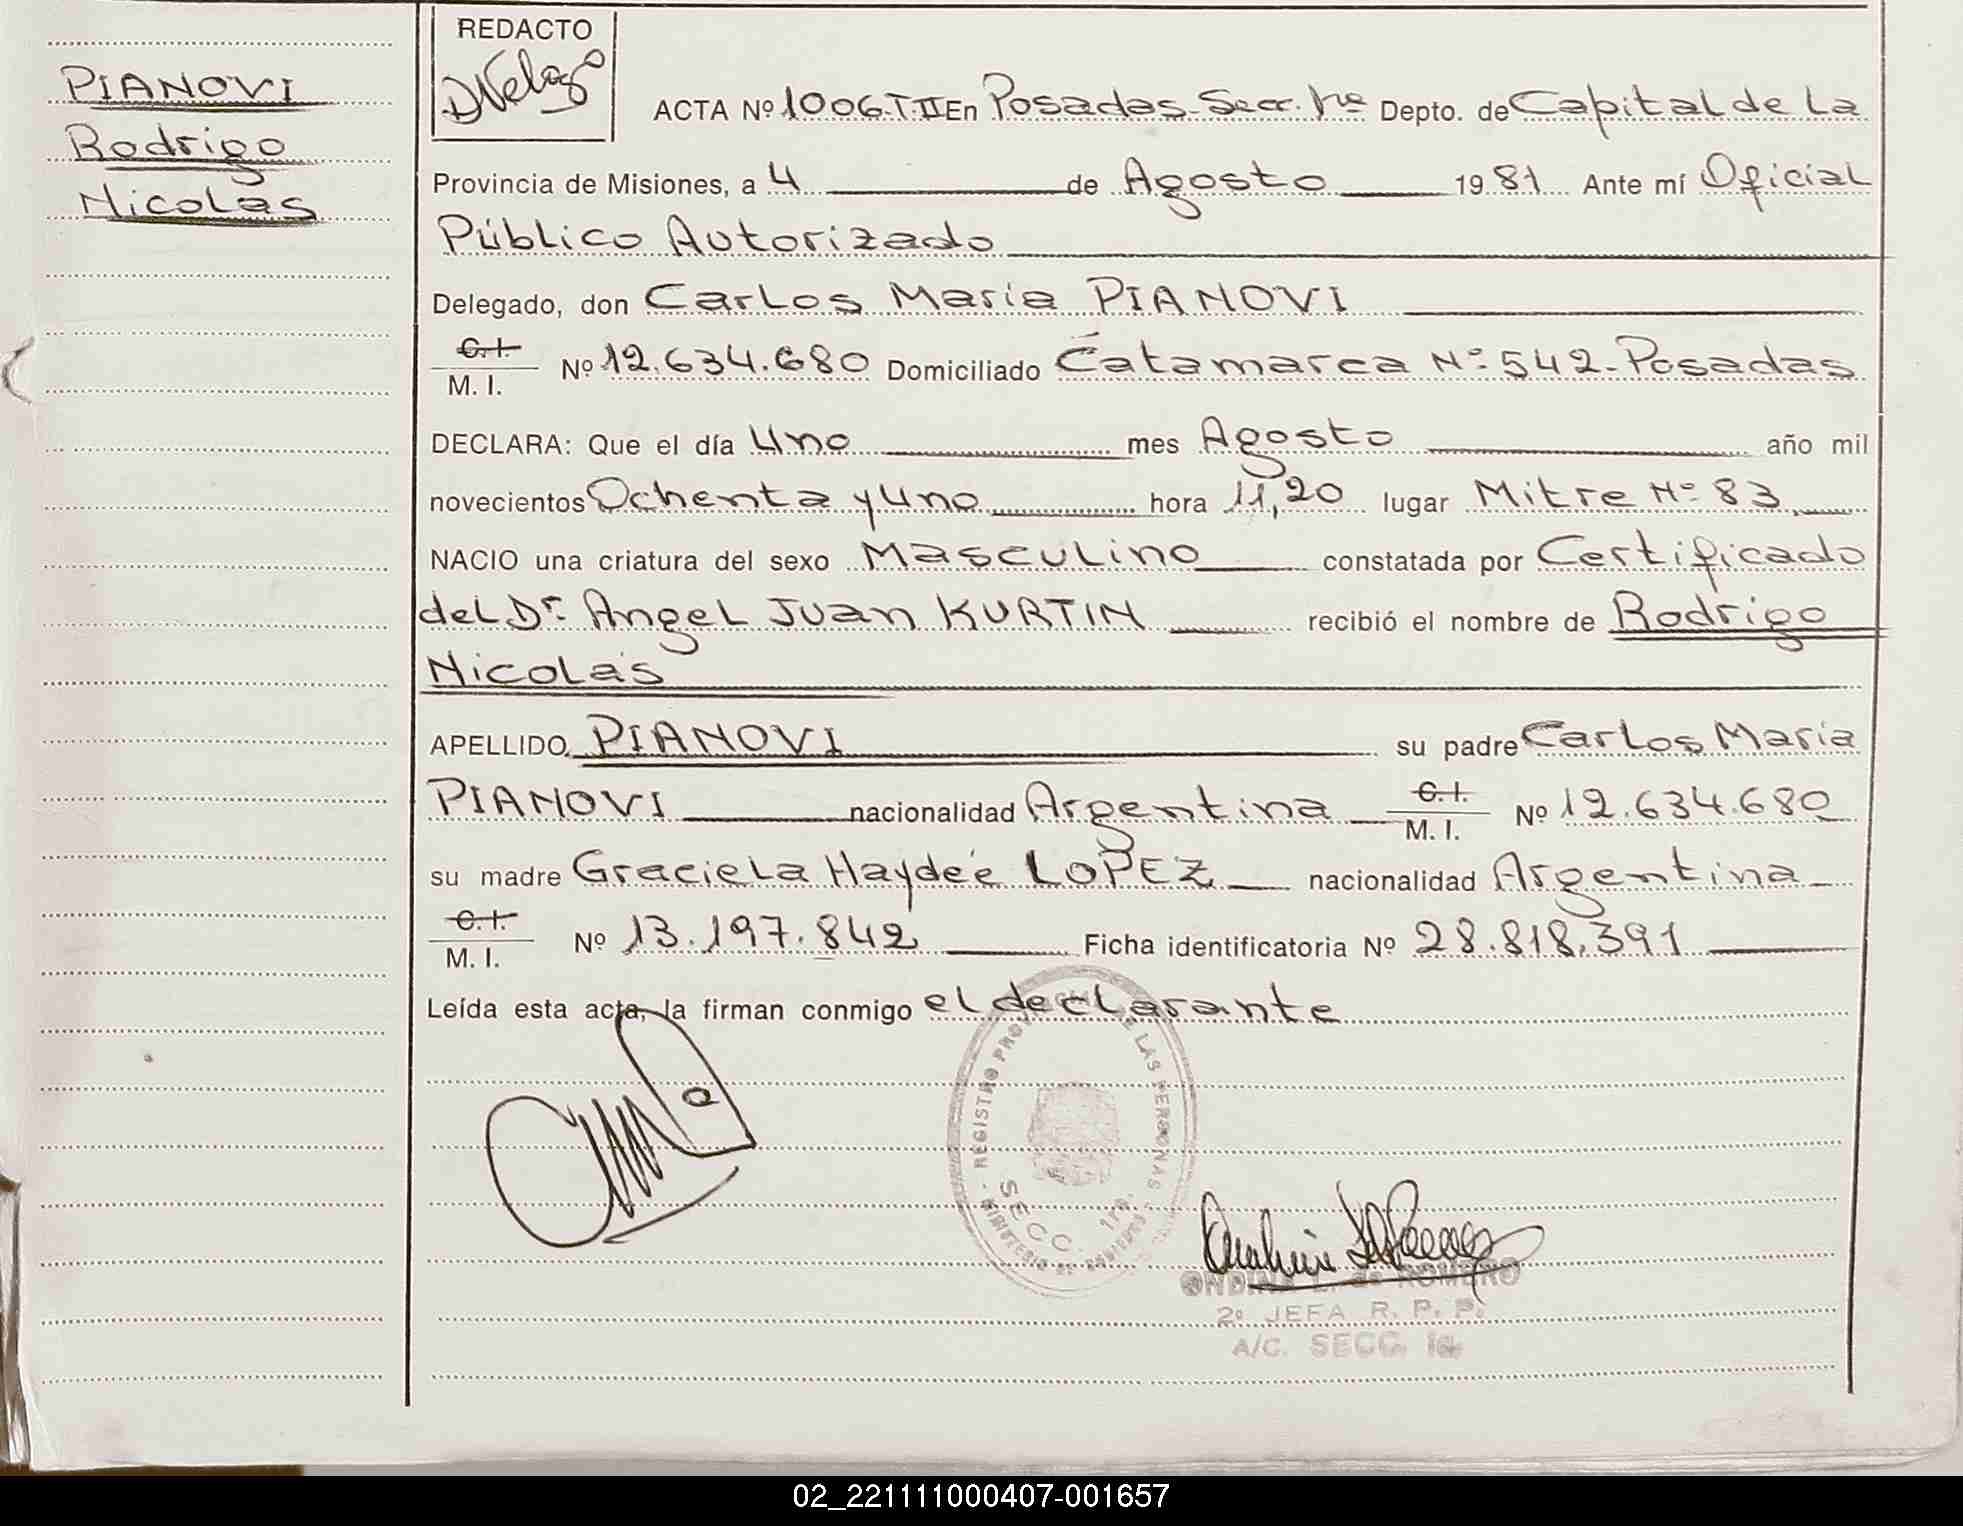 PIANOVI
Rodrigo
Nicolás
REDACTO
ACTA Nº 1006.T.II En Posadas-Secc. 1ra Depto. de Capital de La
Provincia de Misiones, a 4 de Agosto 1981 Ante mí Oficial
Público Autorizado
Delegado, don Carlos María PIANOVI
C.I.
M. I. Nº 12.634.680 Domiciliado Catamarca Nº 542-Posadas
DECLARA: Que el día Uno mes Agosto año mil
novecientos Ochenta y Uno hora 11,20 lugar Mitre Nº 83
NACIO una criatura del sexo Masculino constatada por Certificado
del Dr. Angel Juan KURTIN recibió el nombre de Rodrigo
Nicolás
APELLIDO PIANOVI su padre Carlos María
PIANOVI nacionalidad Argentina C.I. M. I. Nº 12.634.680
su madre Graciela Haydée LOPEZ nacionalidad Argentina
C.I.
M. I. Nº 13.197.842 Ficha identificatoria Nº 28.818.391
Leída esta acta, la firman conmigo el declarante
REGISTRO PROVINCIAL DE LAS PERSONAS
SECC. 1ra.
ONDINA L. de ROMERO
2º JEFA R. P. P.
A/C. SECC. 1a.
02_221111000407-001657